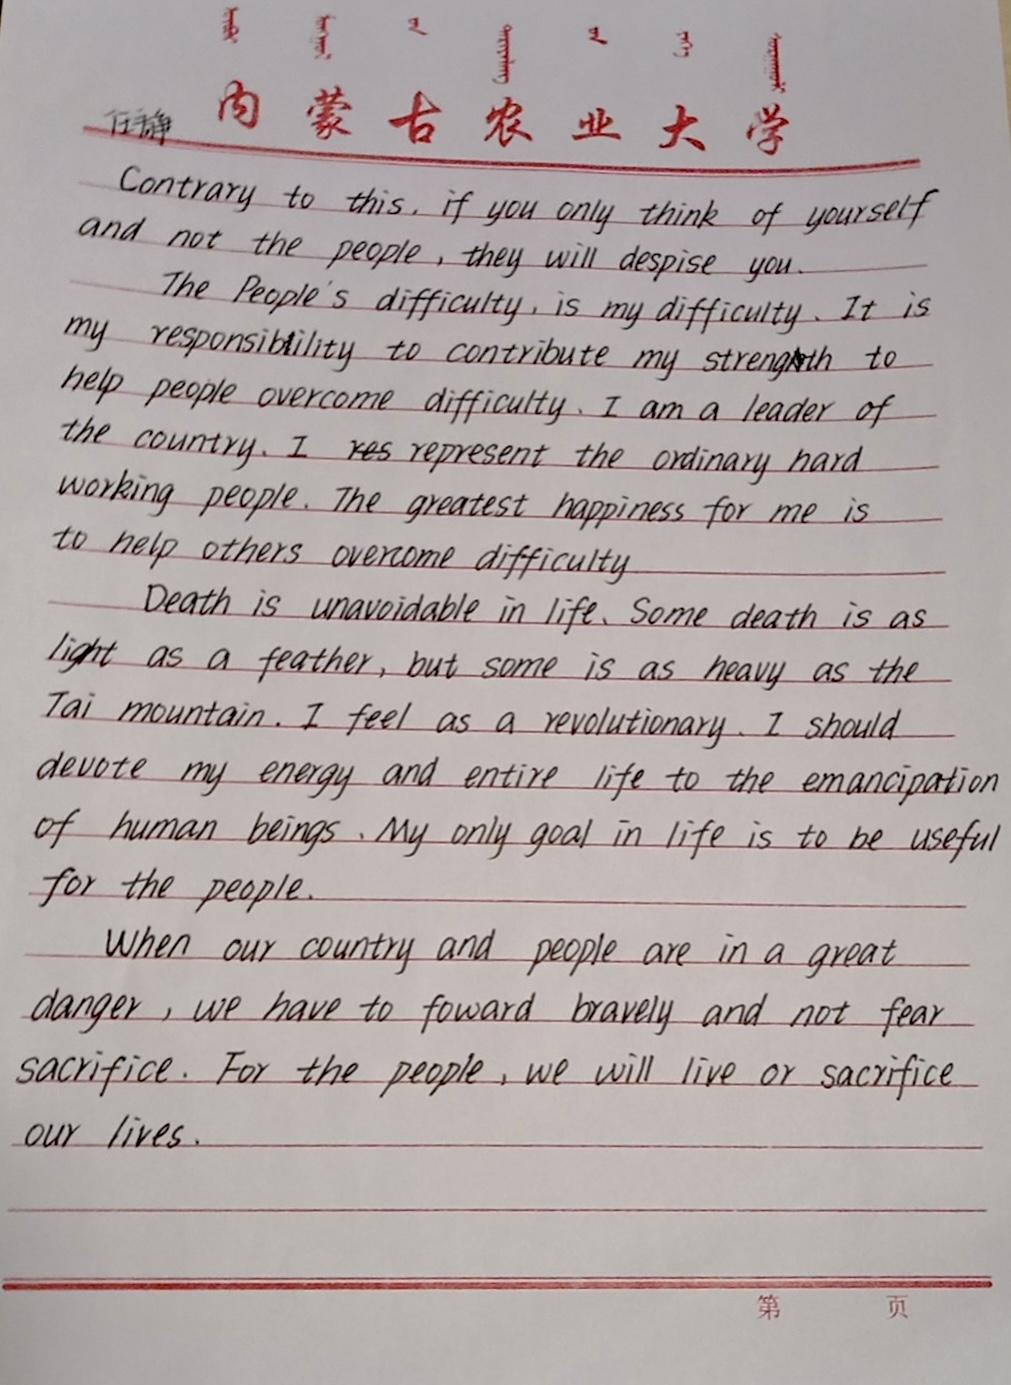 内蒙古农业大学
任静
Contrary to this. if you only think of yourself
and not the people, they will despise you.
The People's difficulty. is my difficulty. It is
my responsibility to contribute my strength to
help people overcome difficulty. I am a leader of
the country. I res represent the ordinary hard
working people. The greatest happiness for me is
to help others overcome difficulty
Death is unavoidable in life. Some death is as
light as a feather, but some is as heavy as the
Tai mountain. I feel as a revolutionary. I should
devote my energy and entire life to the emancipation
of human beings. My only goal in life is to be useful
for the people.
When our country and people are in a great
danger, we have to foward bravely and not fear
sacrifice. For the people, we will live or sacrifice
our lives.
第 页